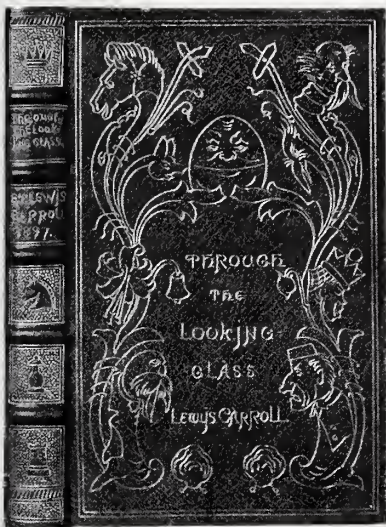 THROUGH
THE LOOK-
ING GLASS
BY LEWIS
CARROLL
1897.
THROUGH
THE
LOOKING
GLASS
LEWYS CARROLL.